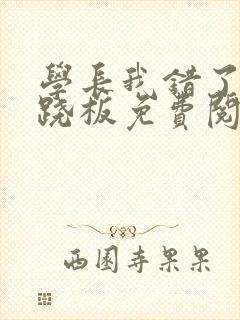 學長我錯了
跷板免費閱
西園寺果果